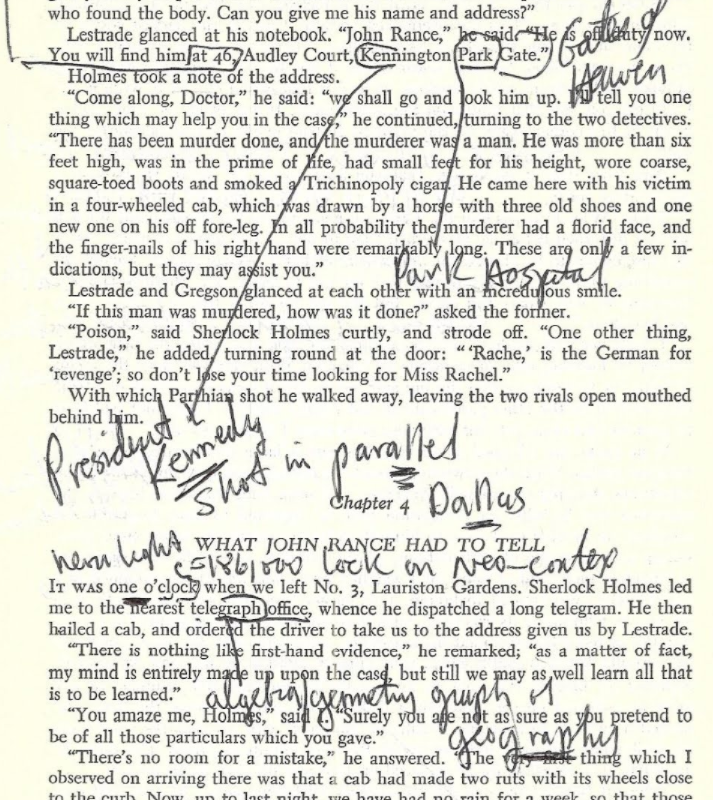 who found the body. Can you give me his name and address?"
Lestrade glanced at his notebook. "John Rance," he said. "He is off duty now.
You will find him at 46, Audley Court, Kennington Park Gate."
Gates of
Heaven
Holmes took a note of the address.
"Come along, Doctor," he said: "we shall go and look him up. I'll tell you one
thing which may help you in the case," he continued, turning to the two detectives.
"There has been murder done, and the murderer was a man. He was more than six
feet high, was in the prime of life, had small feet for his height, wore coarse,
square-toed boots and smoked a Trichinopoly cigar. He came here with his victim
in a four-wheeled cab, which was drawn by a horse with three old shoes and one
new one on his off fore-leg. In all probability the murderer had a florid face, and
the finger-nails of his right hand were remarkably long. These are only a few in-
dications, but they may assist you."
Park Hospital
Lestrade and Gregson glanced at each other with an incredulous smile.
"If this man was murdered, how was it done?" asked the former.
"Poison," said Sherlock Holmes curtly, and strode off. "One other thing,
Lestrade," he added, turning round at the door: "'Rache,' is the German for
'revenge'; so don't lose your time looking for Miss Rachel."
With which Parthian shot he walked away, leaving the two rivals open mouthed
behind him.
President Kennedy
shot in parallel
Chapter 4
Dallas
WHAT JOHN RANCE HAD TO TELL
light
c=186,000 lock on neo-cortex
IT WAS one o'clock when we left No. 3, Lauriston Gardens. Sherlock Holmes led
me to the nearest telegraph office, whence he dispatched a long telegram. He then
hailed a cab, and ordered the driver to take us to the address given us by Lestrade.
"There is nothing like first-hand evidence," he remarked; "as a matter of fact,
my mind is entirely made up upon the case, but still we may as well learn all that
is to be learned."
algebra/geometry graph of
geography
"You amaze me, Holmes," said I. "Surely you are not as sure as you pretend to
be of all those particulars which you gave."
"There's no room for a mistake," he answered. "The very first thing which I
observed on arriving there was that a cab had made two ruts with its wheels close
to the curb. Now, up to last night, we have had no rain for a week, so that those